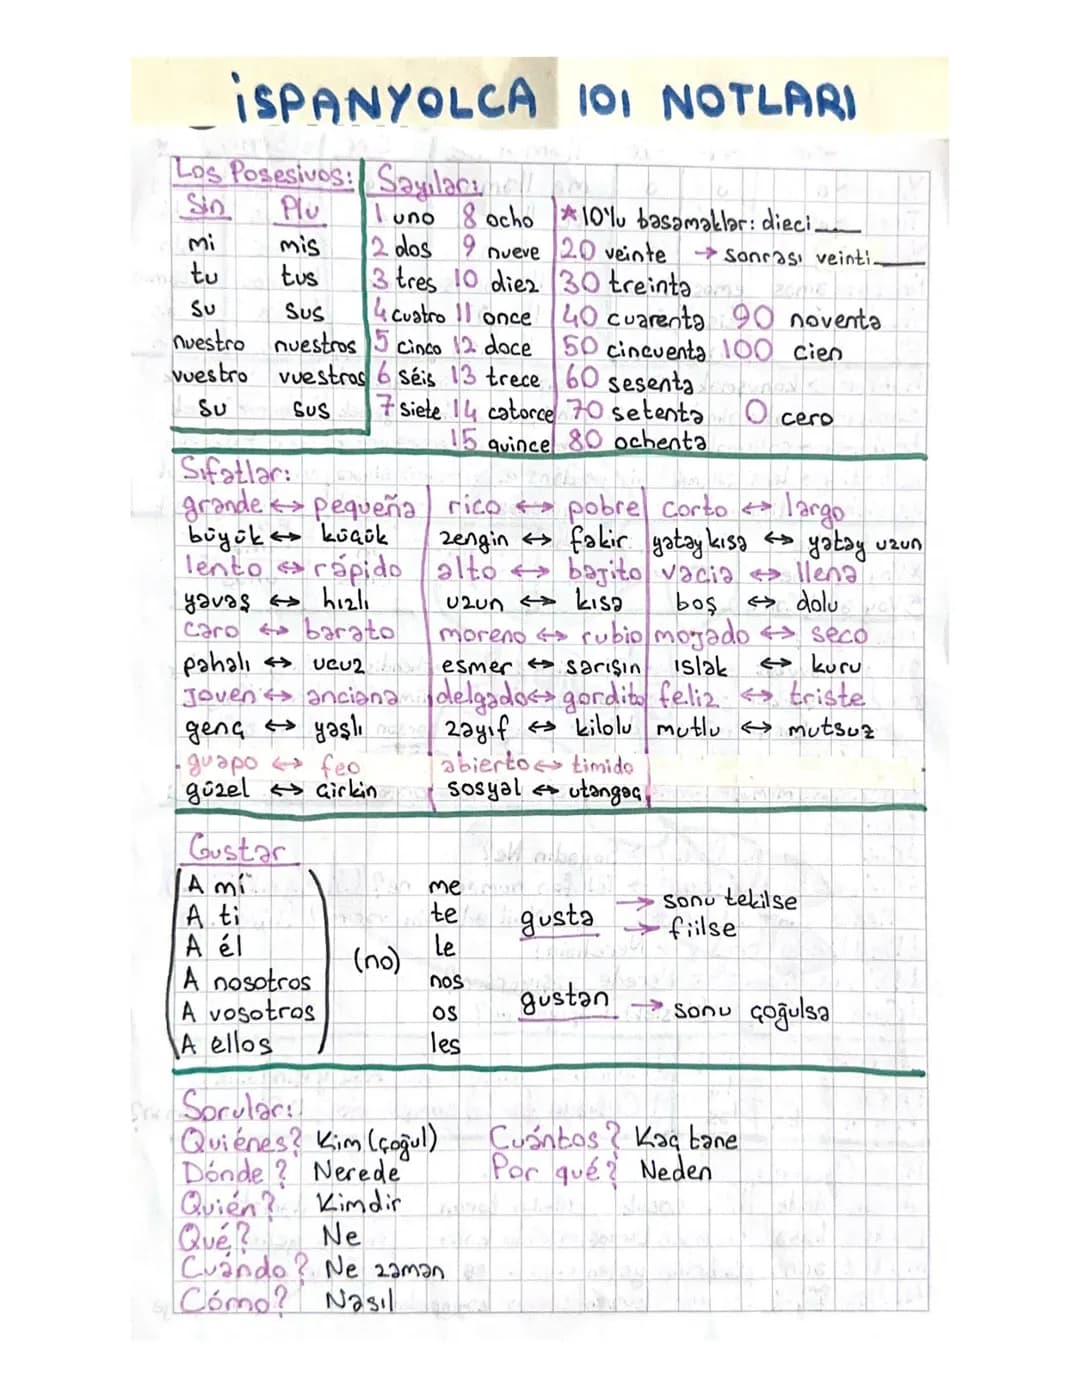 İSPANYOLCA 101 NOTLARI
Los Posesivos:
Sin Plu
mi mis
tu tus
su sus
nuestro nuestros
vuestro vuestros
su sus
Sayılar:
1 uno 8 ocho
2 dos 9 nueve
3 tres 10 diez
4 cuatro 11 once
5 cinco 12 doce
6 séis 13 trece
7 siete 14 catorce
15 quince
*10'lu basamaklar: dieci___
20 veinte → sonrası veinti___
30 treinta
40 cuarenta 90 noventa
50 cincuenta 100 cien
60 sesenta
70 setenta 0 cero
80 ochenta
Sıfatlar:
grande ↔ pequeña rico ↔ pobre corto ↔ largo
büyük ↔ küçük zengin ↔ fakir yatay kısa ↔ yatay uzun
lento ↔ rápido alto ↔ bajito vacia ↔ llena
yavaş ↔ hızlı uzun ↔ kısa boş ↔ dolu
caro ↔ barato moreno ↔ rubio mojado ↔ seco
pahalı ↔ ucuz esmer ↔ sarışın ıslak ↔ kuru
Joven ↔ anciana delgado ↔ gordito feliz ↔ triste
genç ↔ yaşlı zayıf ↔ kilolu mutlu ↔ mutsuz
guapo ↔ feo abierto ↔ timido
güzel ↔ çirkin sosyal ↔ utangaç
Gustar
A mí
A ti
A él
A nosotros
A vosotros
A ellos
(no)
me
te
le
nos
os
les
gusta → sonu tekilse
→ fiilse
gustan → sonu çoğulsa
Sorular:
Quiénes? Kim (çoğul) Cuántos? Kaç tane
Dónde? Nerede Por qué? Neden
Quién? Kimdir
Qué? Ne
Cuándo? Ne zaman
Cómo? Nasıl